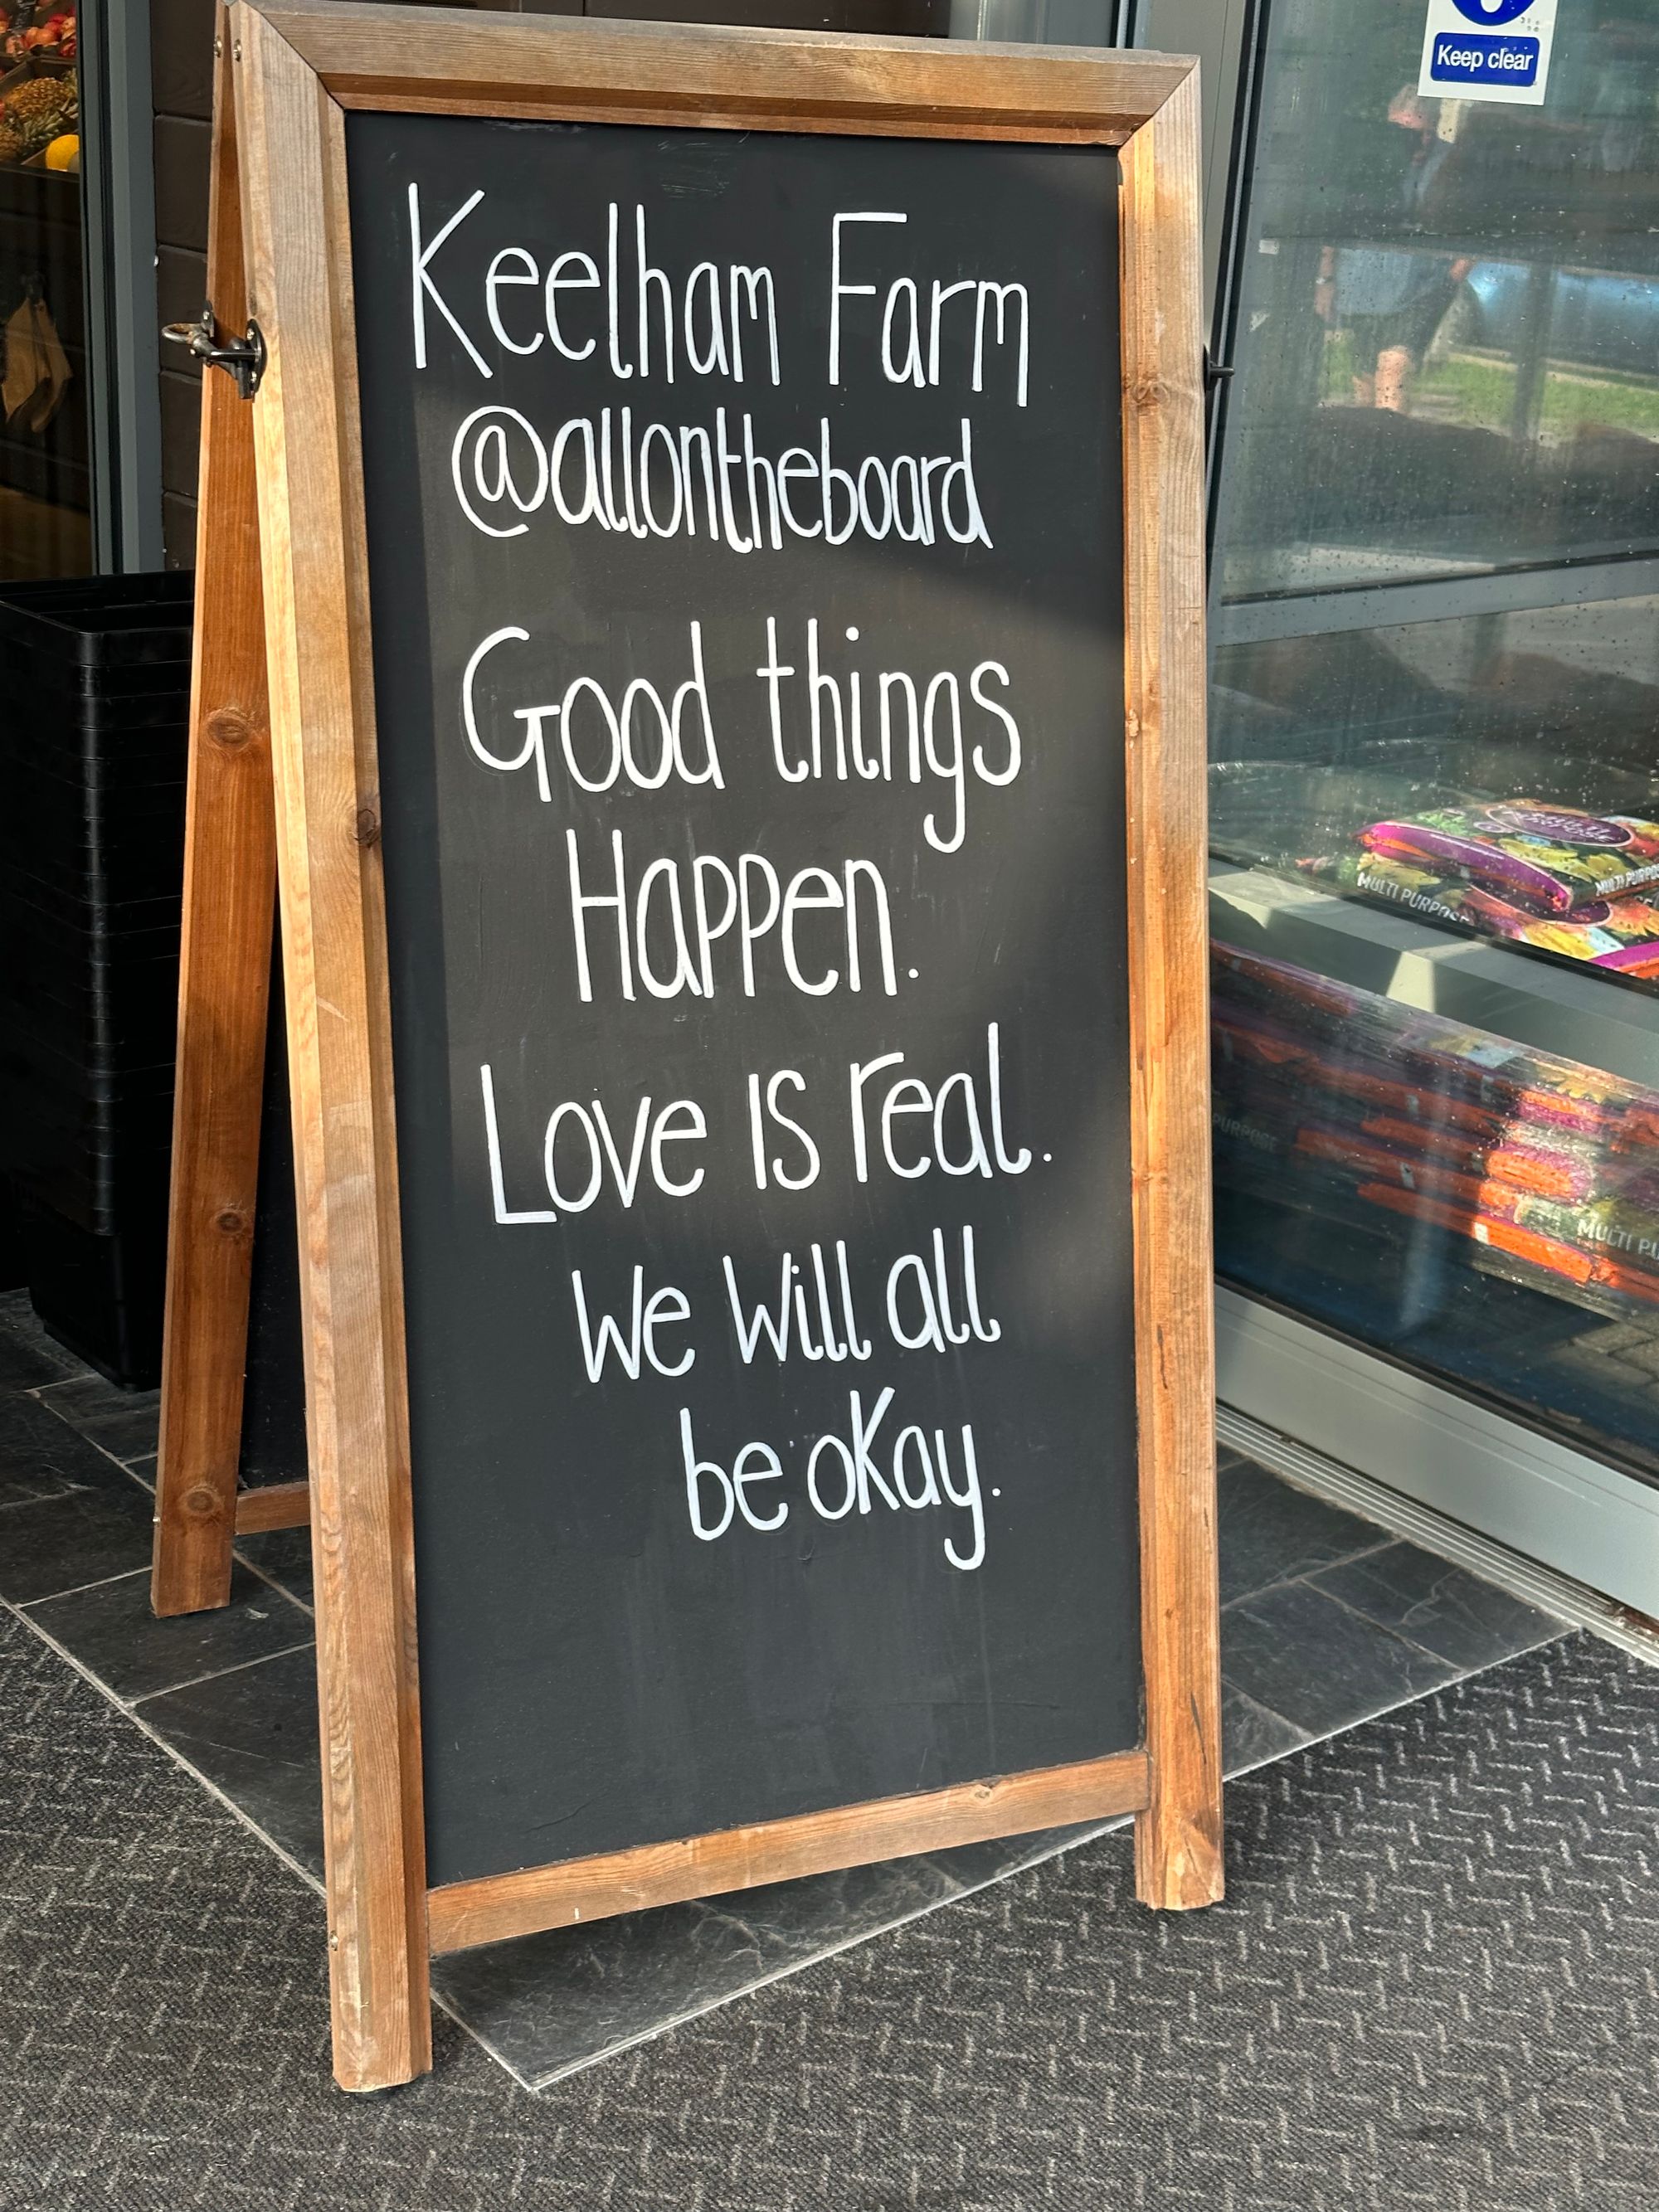 Keep clear
Keelham Farm
@allontheboard
Good things
Happen.
Love is real.
We will all
be okay.
MULTI PURPOSE
MULTI PURPOSE
PURPOSE
MULTI PU